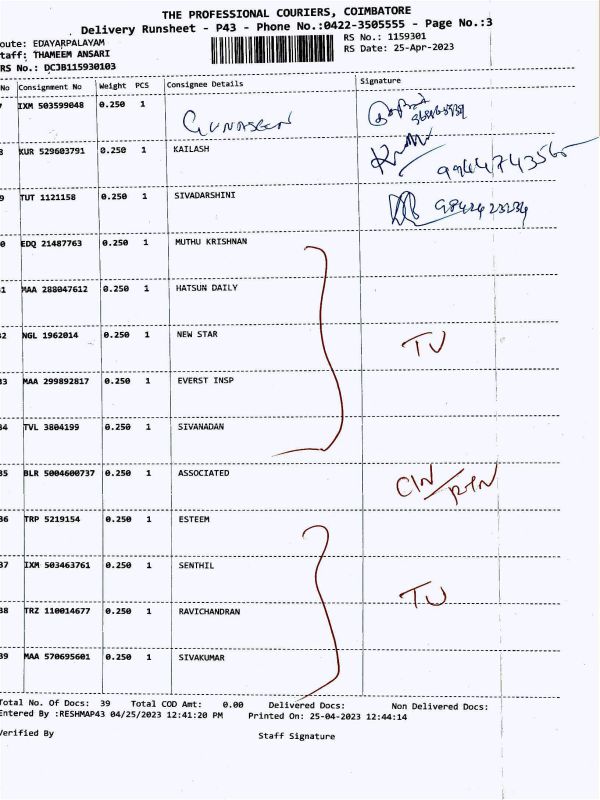 THE PROFESSIONAL COURIERS, COIMBATORE
Delivery Runsheet - P43 - Phone No.:0422-3505555 - Page No.:3
oute: EDAYARPALAYAM RS No.: 1159301
taff: THAMEEM ANSARI RS Date: 25-Apr-2023
RS No.: DCJB115930103
No Consignment No Weight PCS Consignee Details Signature
7 IXM 503599048 0.250 1
8 KUR 529603791 0.250 1 KAILASH
9 TUT 1121158 0.250 1 SIVADARSHINI
0 EDQ 21487763 0.250 1 MUTHU KRISHNAN
1 MAA 288047612 0.250 1 HATSUN DAILY
2 NGL 1962014 0.250 1 NEW STAR TU
3 MAA 299892817 0.250 1 EVERST INSP
4 TVL 3804199 0.250 1 SIVANADAN
35 BLR 5004600737 0.250 1 ASSOCIATED CIN/RTN
36 TRP 5219154 0.250 1 ESTEEM
37 IXM 503463761 0.250 1 SENTHIL
38 TRZ 110014677 0.250 1 RAVICHANDRAN TU
39 MAA 570695601 0.250 1 SIVAKUMAR
Total No. Of Docs: 39 Total COD Amt: 0.00 Delivered Docs: Non Delivered Docs:
Entered By :RESHMAP43 04/25/2023 12:41:20 PM Printed On: 25-04-2023 12:44:14
Verified By Staff Signature